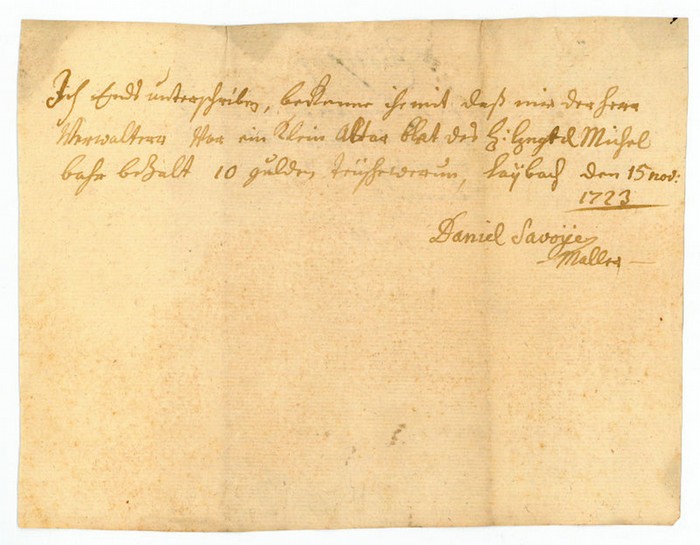 Ich Ends unterschriben, bekenne hiemit daß mir der herr
Verwalterr Vor ein Klein Altar blat des H: Michel
bahr bezalt 10 gulden, Laybach den 15 nov:
1723
Daniel Savoÿe
Maller